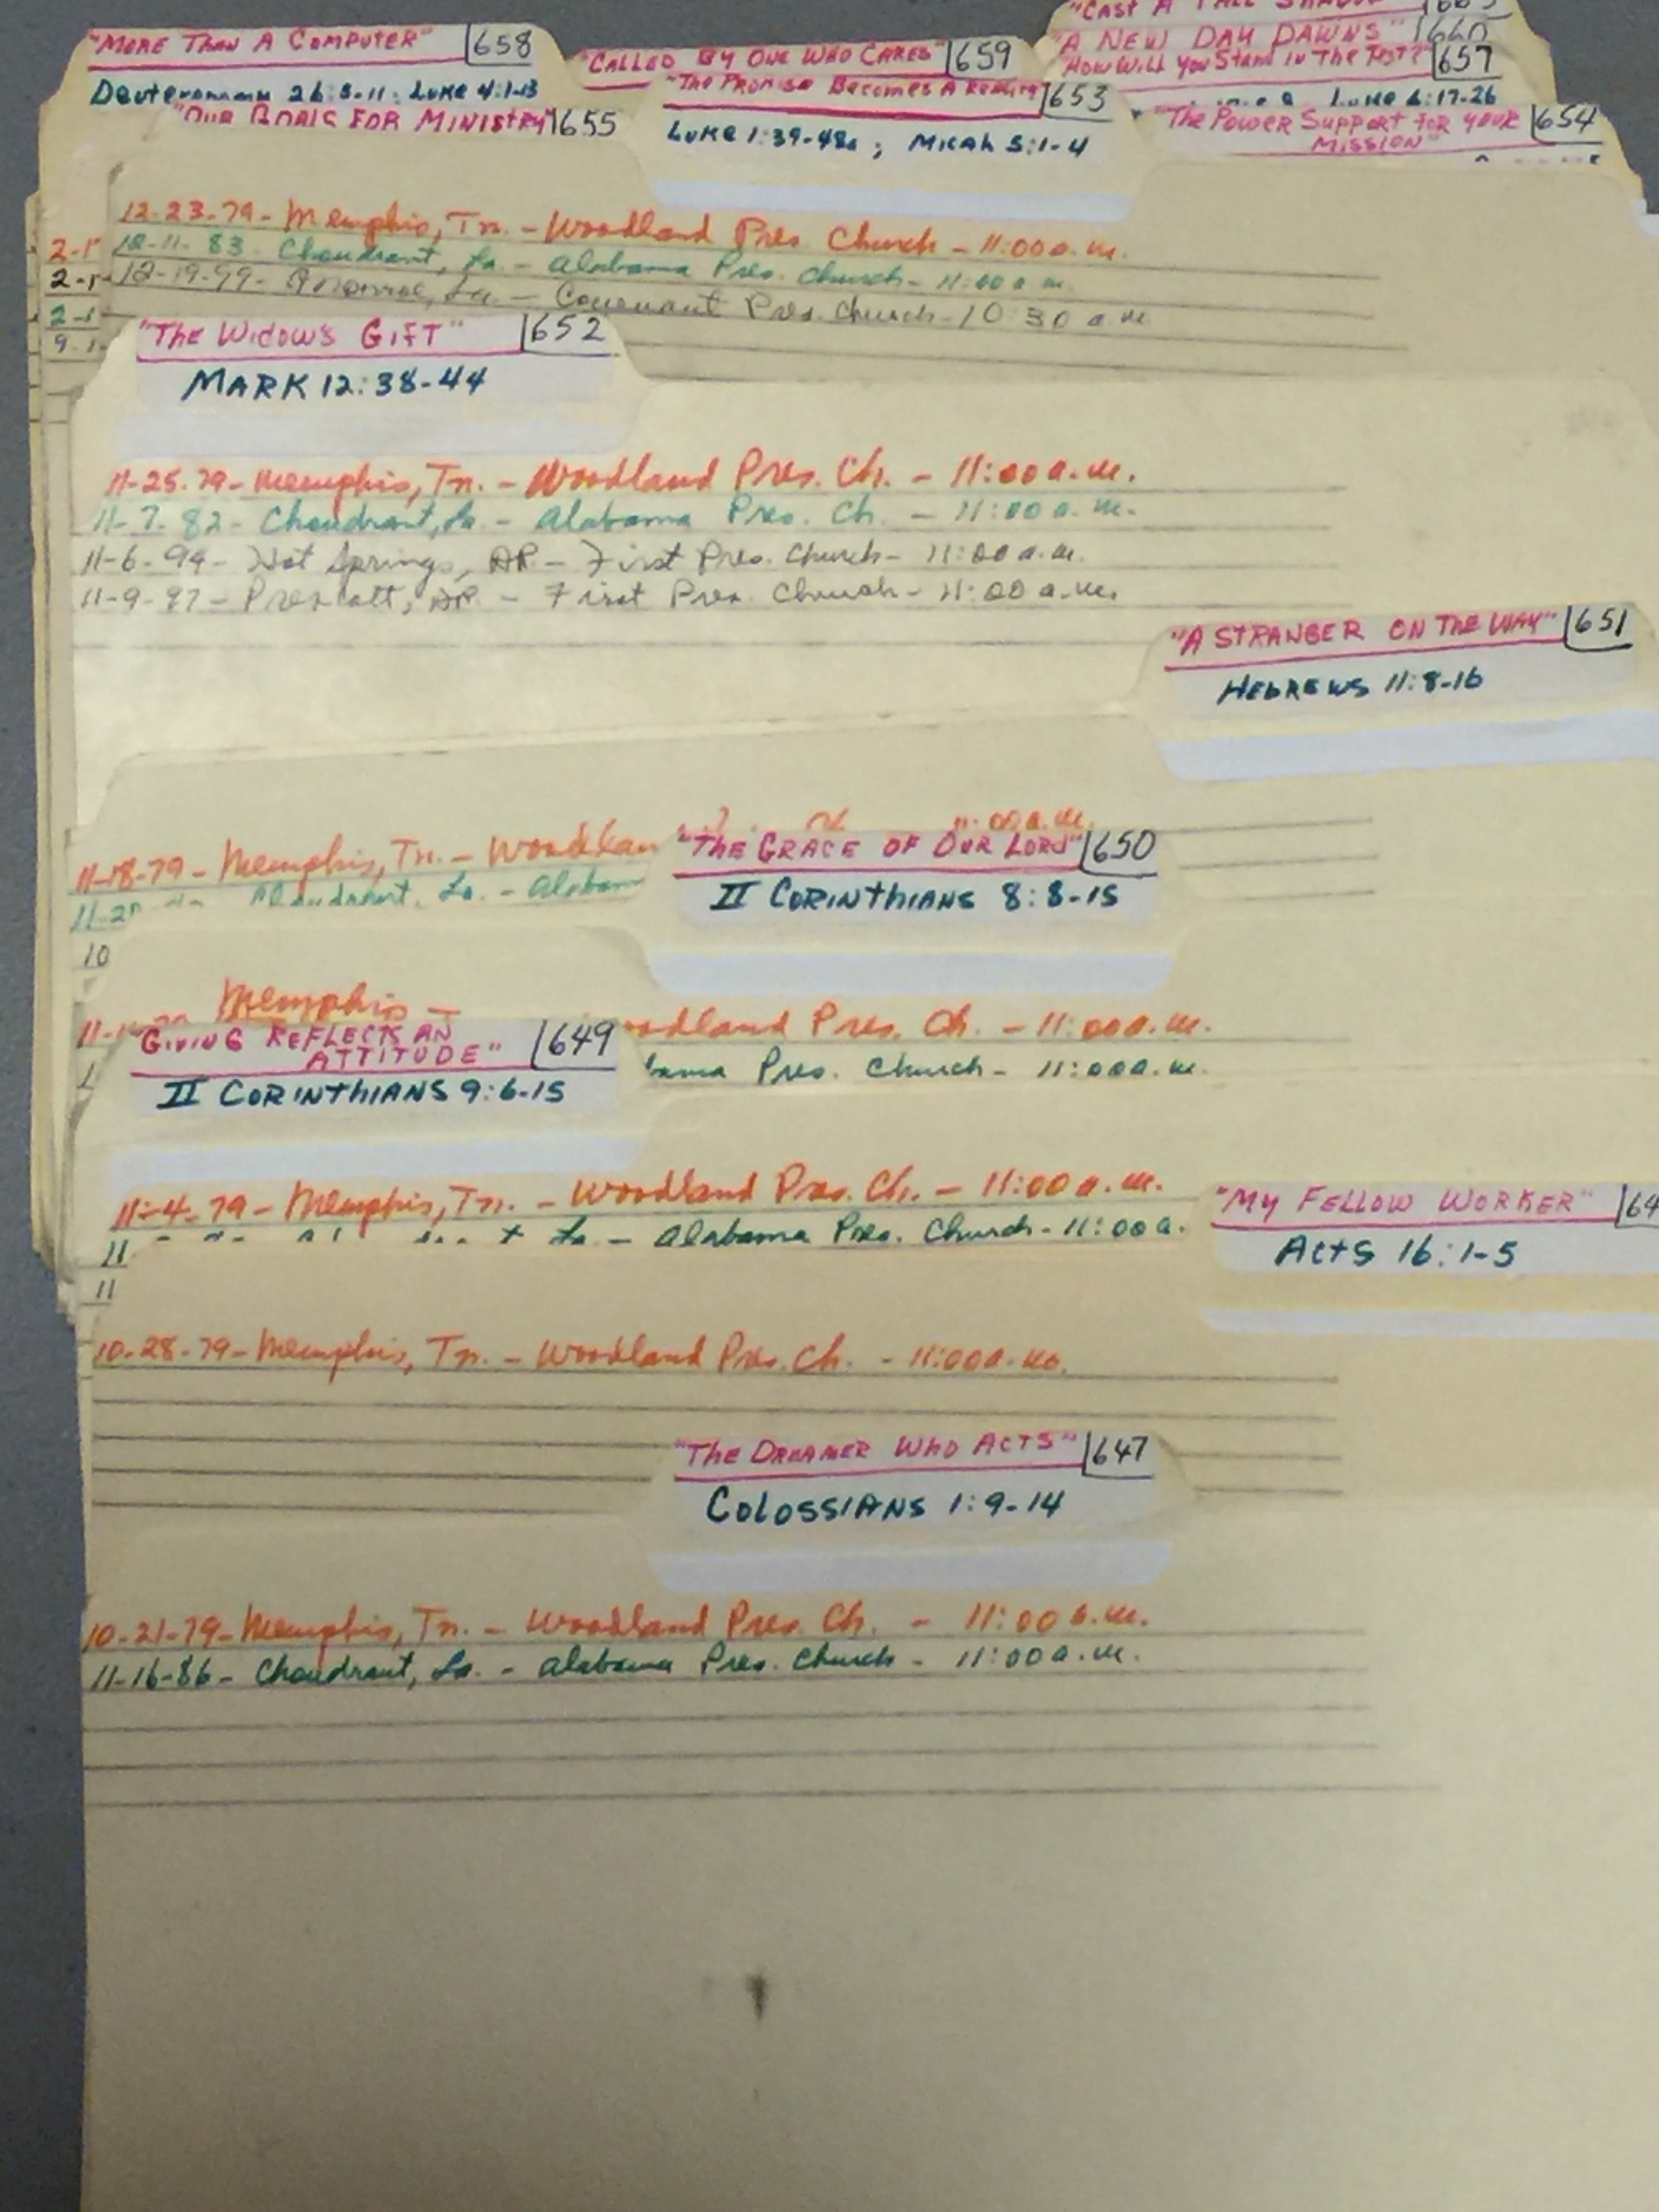 "CAST A TALL
"A NEW DAY DAWNS" 660
"MORE THAN A COMPUTER" 658
"CALLED BY ONE WHO CARES" 659
"HOW WILL YOU STAND IN THE TEST?" 657
Deuteronomy 26:5-11; LUKE 4:1-13
"The Promise Becomes A Reality" 653
LUKE 6:17-26
"OUR GOALS FOR MINISTRY" 655
LUKE 1:39-48a; MICAH 5:1-4
"The Power Support for your 654
MISSION"
12-23-79- Memphis, Tn. - Woodland Pres. Church - 11:00 a.m.
12-11-83- Choudrant, La. - Alabama Pres. Church - 11:00 a.m.
12-19-99- La. - Covenant Pres. Church - 10:30 a.m.
"The Widow's GIFT" 652
MARK 12:38-44
11-25-79- Memphis, Tn. - Woodland Pres. Ch. - 11:00 a.m.
11-7-82- Choudrant, La. - Alabama Pres. Ch. - 11:00 a.m.
11-6-94- Hot Springs, AR. - First Pres. Church - 11:00 a.m.
11-9-97- Prescott, AR. - First Pres. Church - 11:00 a.m.
"A STRANGER ON THE WAY" 651
HEBREWS 11:8-16
11-18-79- Memphis, Tn. - Woodlan 11:00 a.m.
Choudrant, La. - Alabam
"THE GRACE OF OUR LORD" 650
II CORINTHIANS 8:8-15
10
Memphis - oodland Pres. Ch. - 11:00 a.m.
bama Pres. Church - 11:00 a.m.
"GIVING REFLECTS AN 649
ATTITUDE"
II CORINTHIANS 9:6-15
11-4-79- Memphis, Tn. - Woodland Pres. Ch. - 11:00 a.m.
11 La. - Alabama Pres. Church - 11:00 a.
11
"MY FELLOW WORKER" 64
Acts 16:1-5
10-28-79- Memphis, Tn. - Woodland Pres. Ch. - 11:00 a.m.
"THE DREAMER WHO ACTS" 647
COLOSSIANS 1:9-14
10-21-79- Memphis, Tn. - Woodland Pres. Ch. - 11:00 a.m.
11-16-86- Choudrant, La. - Alabama Pres. Church - 11:00 a.m.